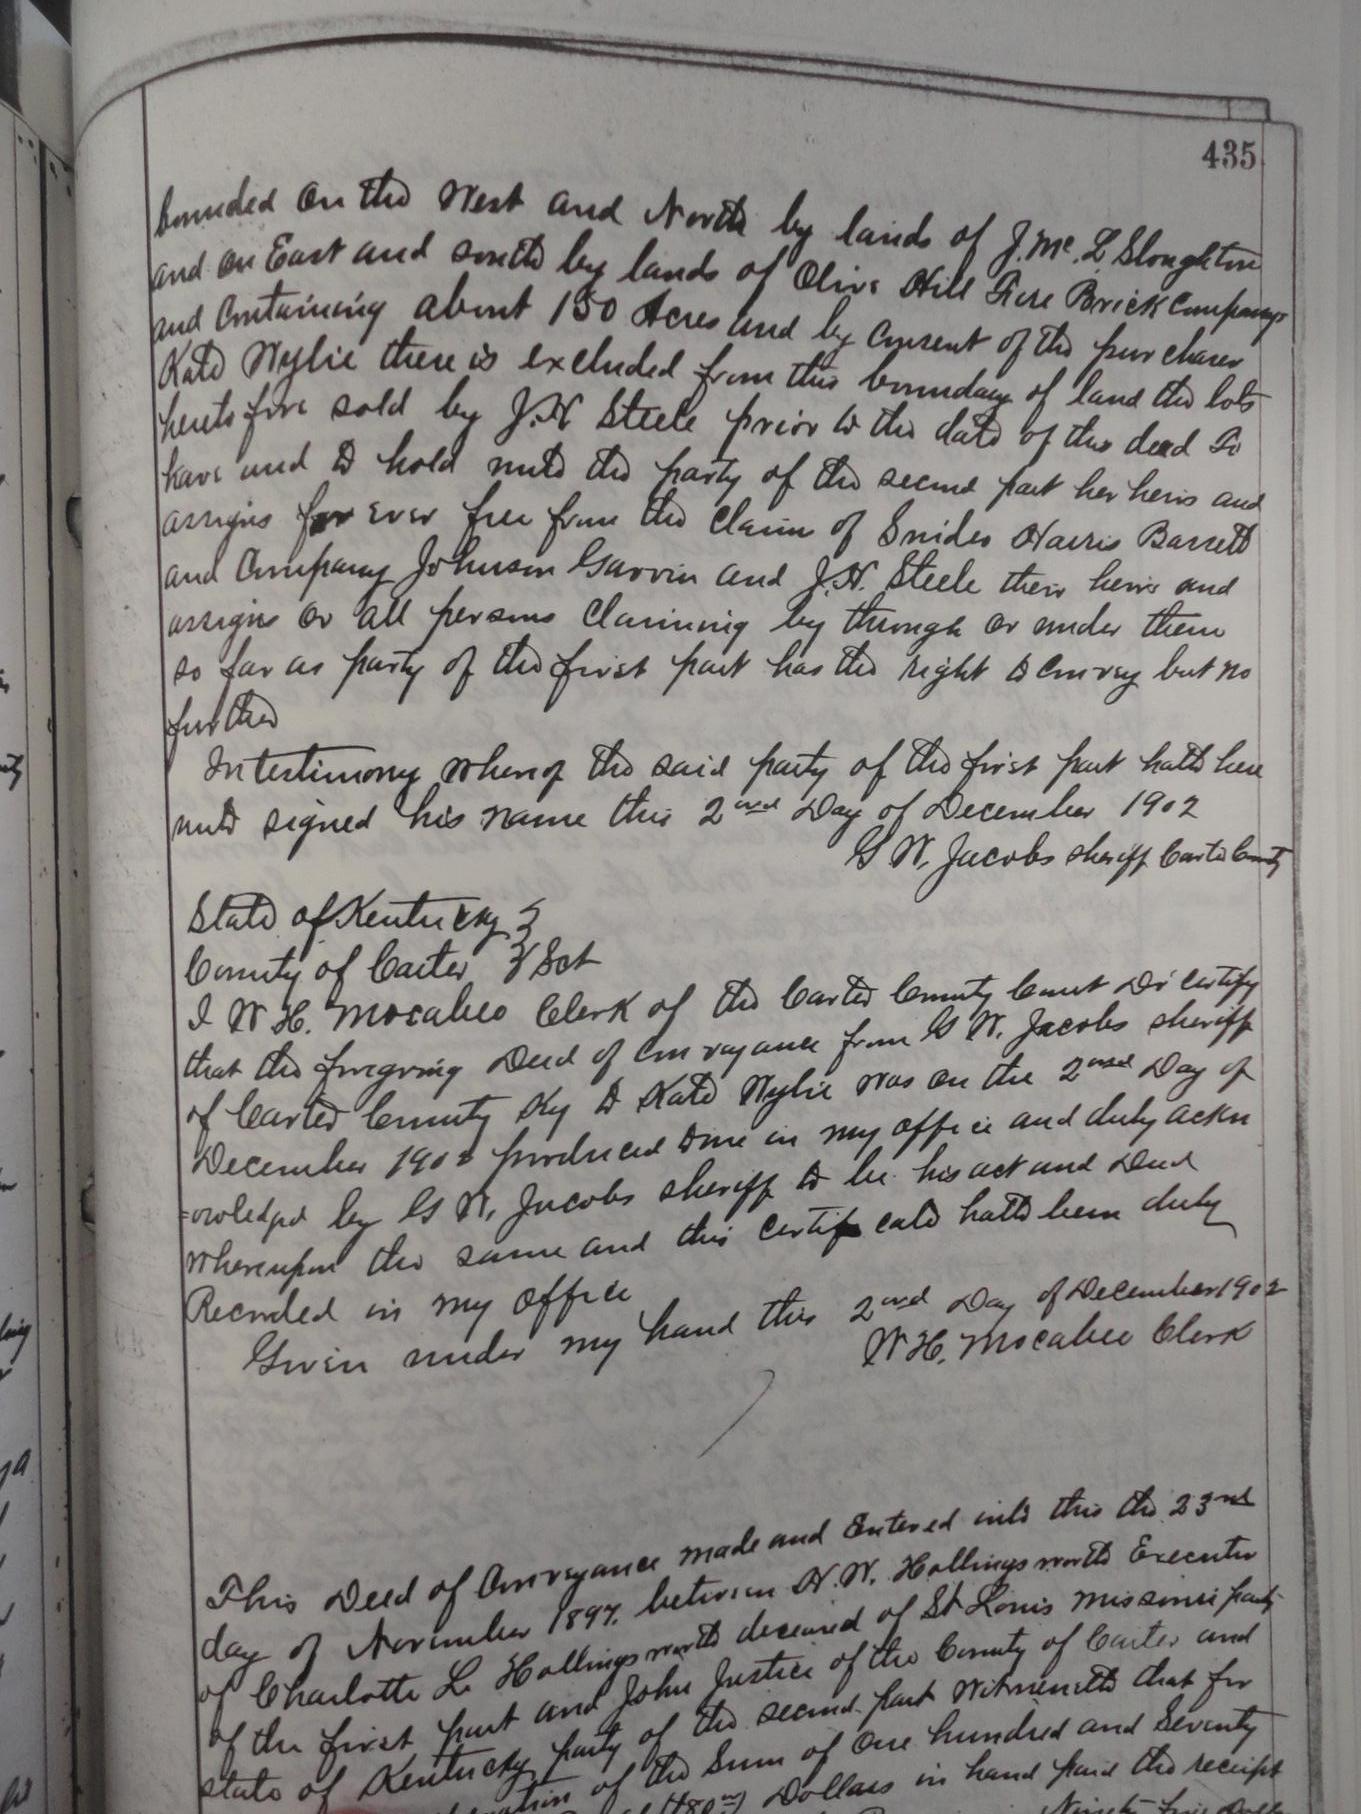 435
bounded on the West and North by lands of J. Mc. L Sloughton
and on East and south by lands of Olive Hill Fire Brick Company
and Containing about 150 Acres and by consent of the purchaser
Kate Wylie there is excluded from this boundary of land the lots
heretofore sold by J.H Steele prior to the date of this deed To
have and to hold unto the party of the second part her heirs and
assigns for ever free from the Claim of Snider Harris Bassett
and Company Johnson Garvin and J.H. Steele their heirs and
assigns or all persons Claiming by through or under them
so far as party of the first part has the right to convey but no
further
In testimony whereof the said party of the first part hath here
unto signed his name this 2nd Day of December 1902
G W, Jacobs sheriff Carter County
State of Kentucky }
County of Carter } Sct
I W H. Mocabee Clerk of the Carter County Court Do certify
that the foregoing Deed of conveyance from G W. Jacobs sheriff
of Carter County Ky to Kate Wylie was on the 2nd Day of
December 1902 produced to me in my office and duly ackn
=owledged by G W, Jacobs sheriff to be his act and Deed
Whereupon the same and this certificate hath been duly
Recorded in my office
Given under my hand this 2nd Day of December 1902
W H. Mocabee Clerk
This Deed of Conveyance made and Entered into this the 23rd
day of November 1897. between H. W. Hollingsworth Executor
of Charlotte L. Hollingsworth deceased of St Louis Missouri party
of the first part and John Justice of the County of Carter and
state of Kentucky party of the second part Witnesseth that for
of the Sum of One hundred and Seventy
Dollars in hand paid the receipt